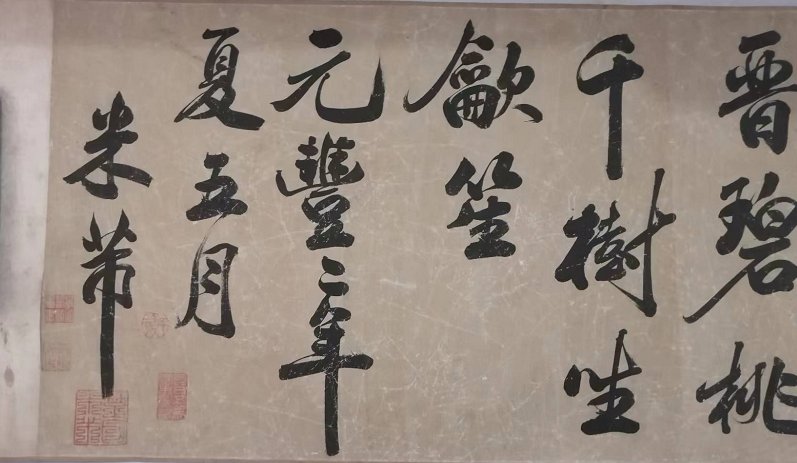 晋碧桃
千樹坐
龡笙
元豐二年
夏五月
米芾